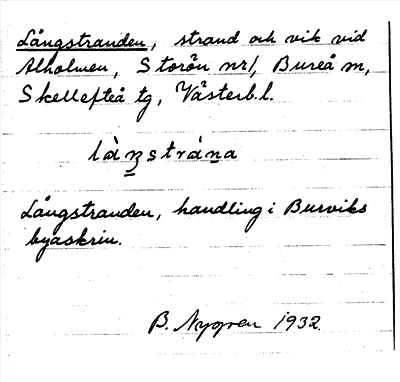 Långstranden, strand och vik vid
Alholmen, Storön nr 1, Bureå sn,
Skellefteå tg, Västerb. l.
Långstranden, handling i Burviks
byaskrin.
B. Nygren 1932.